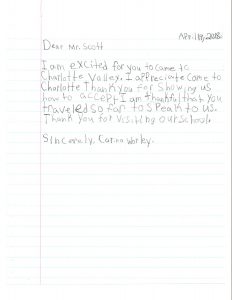 April 19, 2018
Dear Mr. Scott
I am excited for you to come to
Charlotte Valley. I appreciate came to
Charlotte Thank you for showing us
how to accept I am thankful that you
traveled so far to speak to us.
Thank you for visiting our school.
Sincerely, Carina Worley.